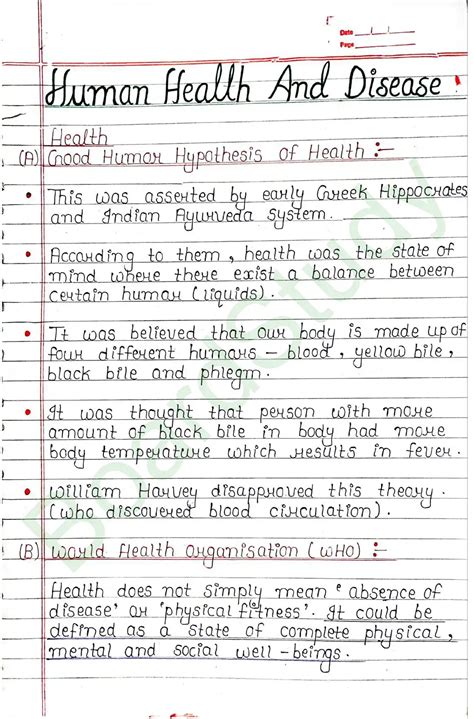 Date / /
Page
Human Health And Disease
Health
(A) Good Humor Hypothesis of Health :-
• This was asserted by early Greek Hippocrates
and Indian Ayurveda system.
• According to them, health was the state of
mind where there exist a balance between
certain humar (liquids).
• It was believed that our body is made up of
four different humars - blood, yellow bile,
black bile and phlegm.
• It was thought that person with more
amount of black bile in body had more
body temperature which results in fever.
• William Harvey disapproved this theory.
(who discovered blood circulation).
(B) World Health Organisation (WHO) :-
Health does not simply mean 'absence of
disease' or 'physical fitness'. It could be
defined as a state of complete physical,
mental and social well-beings.
BoardStudy